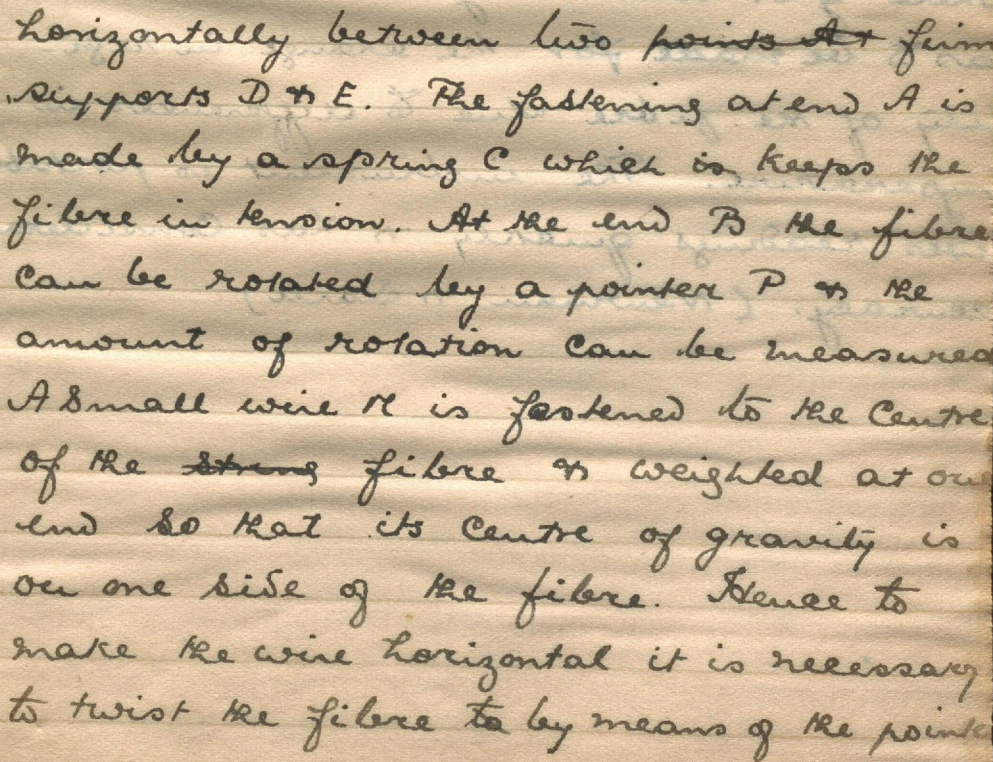 horizontally between two points At firm
supports D & E. The fastening at end A is
made by a spring C which is keeps the
fibre in tension. At the end B the fibre
can be rotated by a pointer P & the
amount of rotation can be measured
A small wire M is fastened to the centre
of the string fibre & weighted at one
end so that its centre of gravity is
on one side of the fibre. Hence to
make the wire horizontal it is necessary
to twist the fibre to by means of the pointe